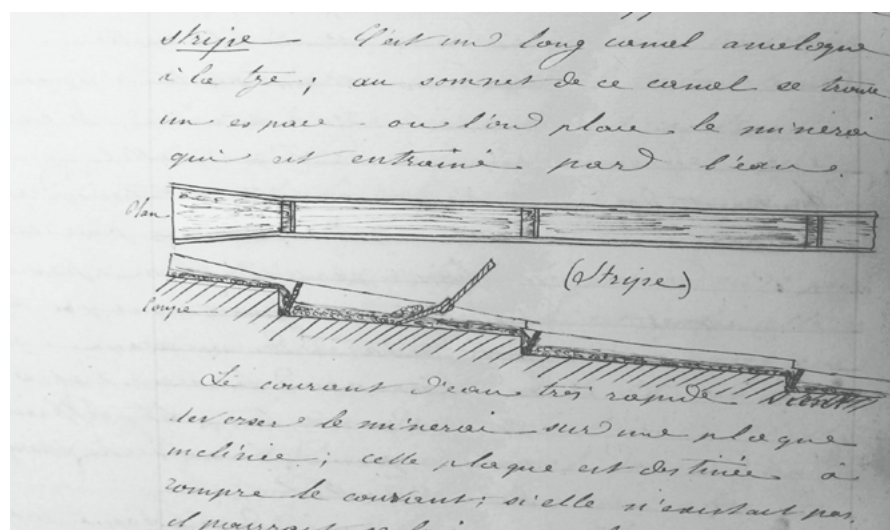 stripe C'est un long canal analogue
à la tye ; au sommet de ce canal se trouve
un espace ou l'on place le minerai
qui est entrainé par l'eau.
Plan
(Stripe)
Coupe
Le courant d'eau très rapide
deverser le minerai sur une plaque
inclinée ; cette plaque est destinée à
rompre le courant ; si elle n'existait pas
il pourrait